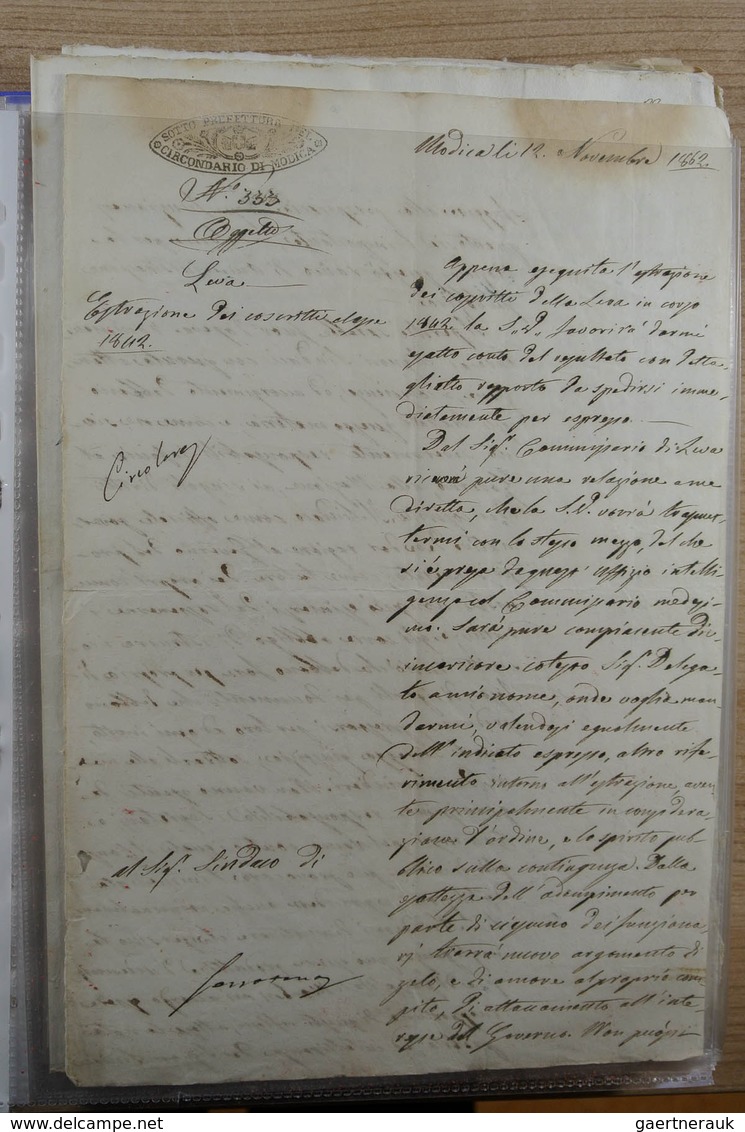 SOTTO PREFETTURA DEL
CIRCONDARIO DI MODICA
Modica li 12. Novembre 1862.
N.º 333
Oggetto
Leva
Estrazione dei coscritti classe
1842.
Circolare
al Sig.r Sindaco di
Appena eseguita l'estrazione
dei coscritti della Leva in corso
1842 la S. V. favorirà darmi
esatto conto del resultato con detta-
gliatto rapporto da spedirsi imme-
diatamente per espresso.
Dal Sig.r Commissario di Leva
pure una relazione a me
diretta, che la S. V. vorrà trasmet-
termi con lo stesso mezzo, del che
si è presa da quest' Uffizio intelli-
genza col Commissario medesi-
mo. Sarà pure compiacente d'in-
incaricare cotesto Sig.r Delega-
to a mio nome, onde voglia man-
darmi, valendosi egualmente
dell'indicato espresso, altro rife-
rimento intorno all'estrazione, aven-
te principalmente in considera-
zione l'ordine, e lo spirito pub-
blico sulla contingenza. Dalla
esattezza dell'adempimento per
parte di ciascuno dei funziona-
rj trarrà nuovo argomento di
zelo, e di amore al proprio com-
pito, di attaccamento all'inte-
resse del Governo. Non può
gaertnerauk@